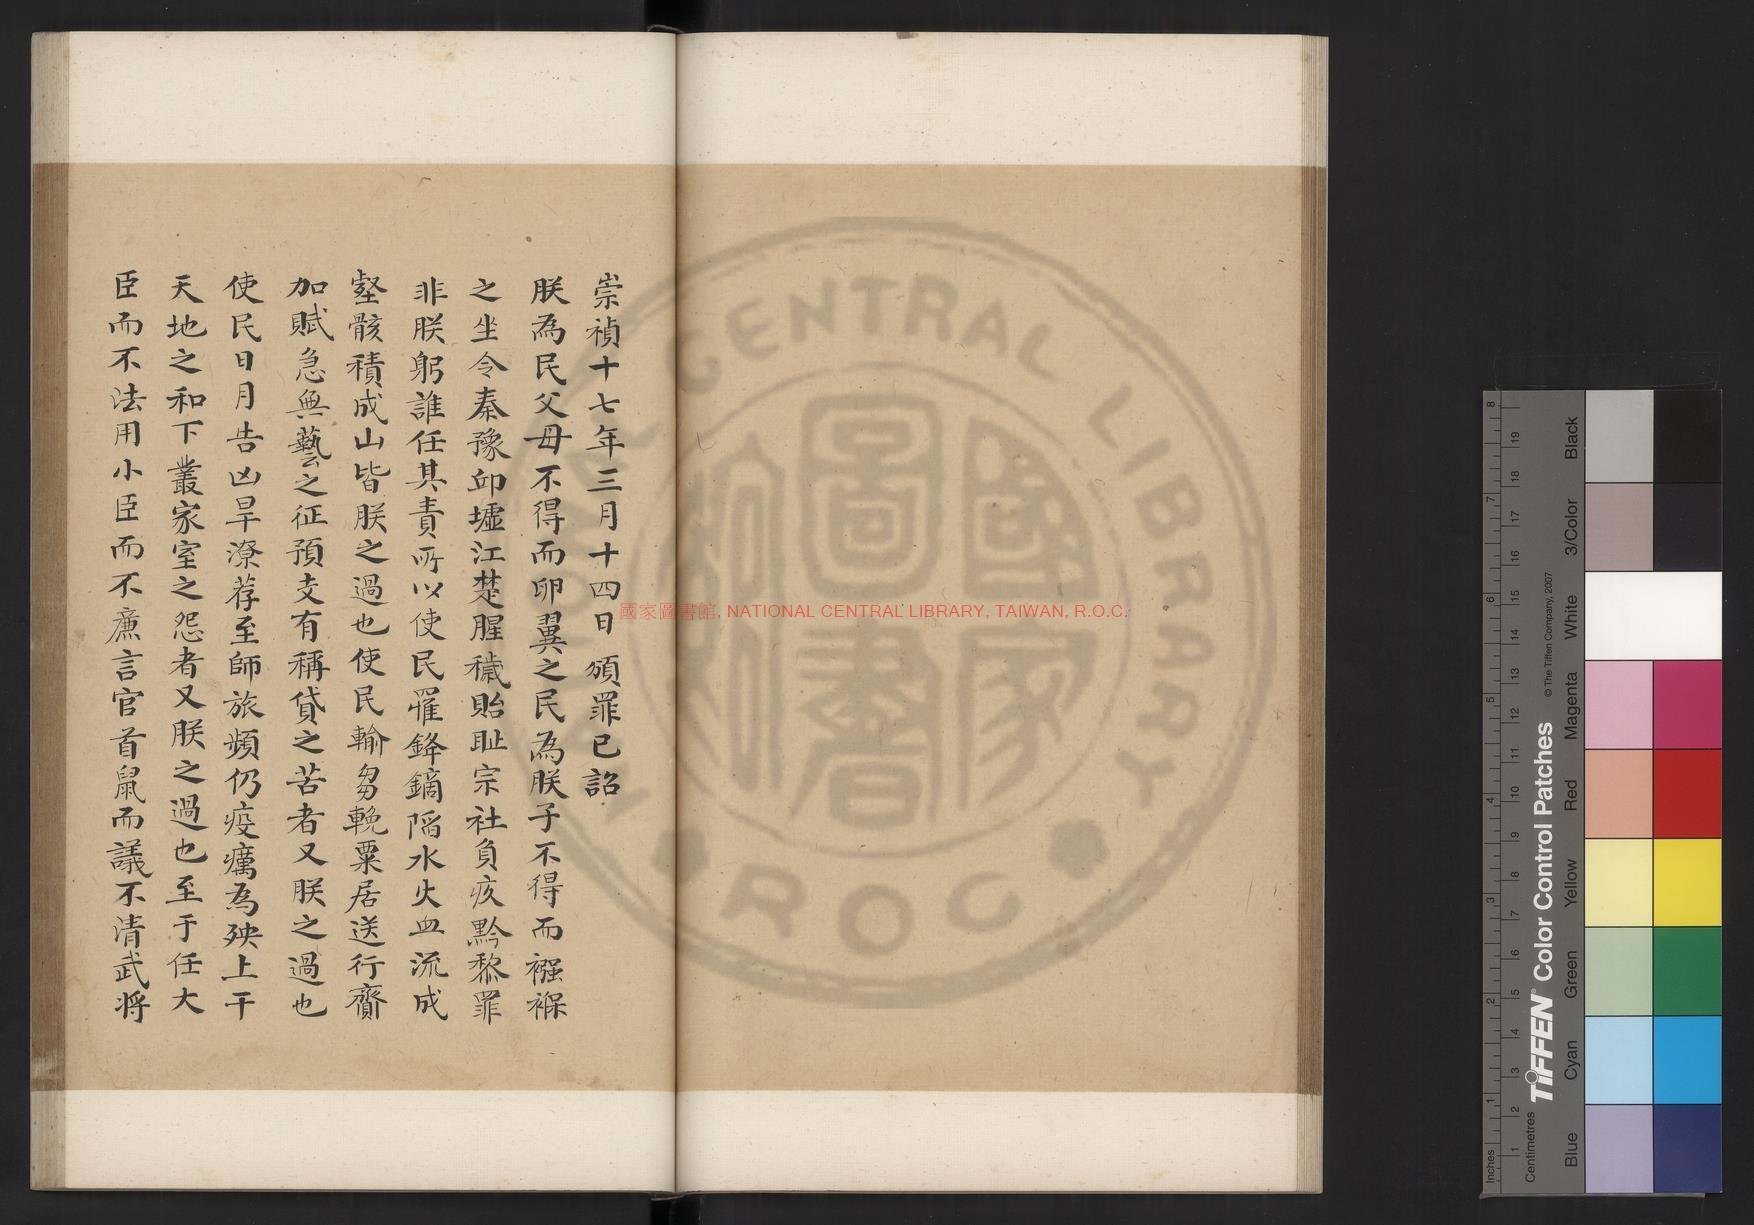 崇禎十七年三月十四日 頒罪已詔
朕為民父母不得而卵翼之民為朕子不得而襁褓
之坐令秦豫邱墟江楚腥穢貽耻宗社負疚黔黎罪
非朕躬誰任其責所以使民罹鋒鏑陷水火血流成
壑骸積成山皆朕之過也使民輸芻輓粟居送行齎
加賦急無藝之征預支有稱貸之苦者又朕之過也
使民日月告凶旱潦荐至師旅頻仍疫癘為殃上干
天地之和下叢家室之怨者又朕之過也至于任大
臣而不法用小臣而不廉言官首鼠而議不清武將
國家圖書館, NATIONAL CENTRAL LIBRARY, TAIWAN, R.O.C.
CENTRAL LIBRARY
R.O.C.
國家圖書館
Inches
Centimetres
TIFFEN® Color Control Patches
© The Tiffen Company, 2007
Blue Cyan Green Yellow Red Magenta White 3/Color Black
1 2 3 4 5 6 7 8
1 2 3 4 5 6 7 8 9 10 11 12 13 14 15 16 17 18 19